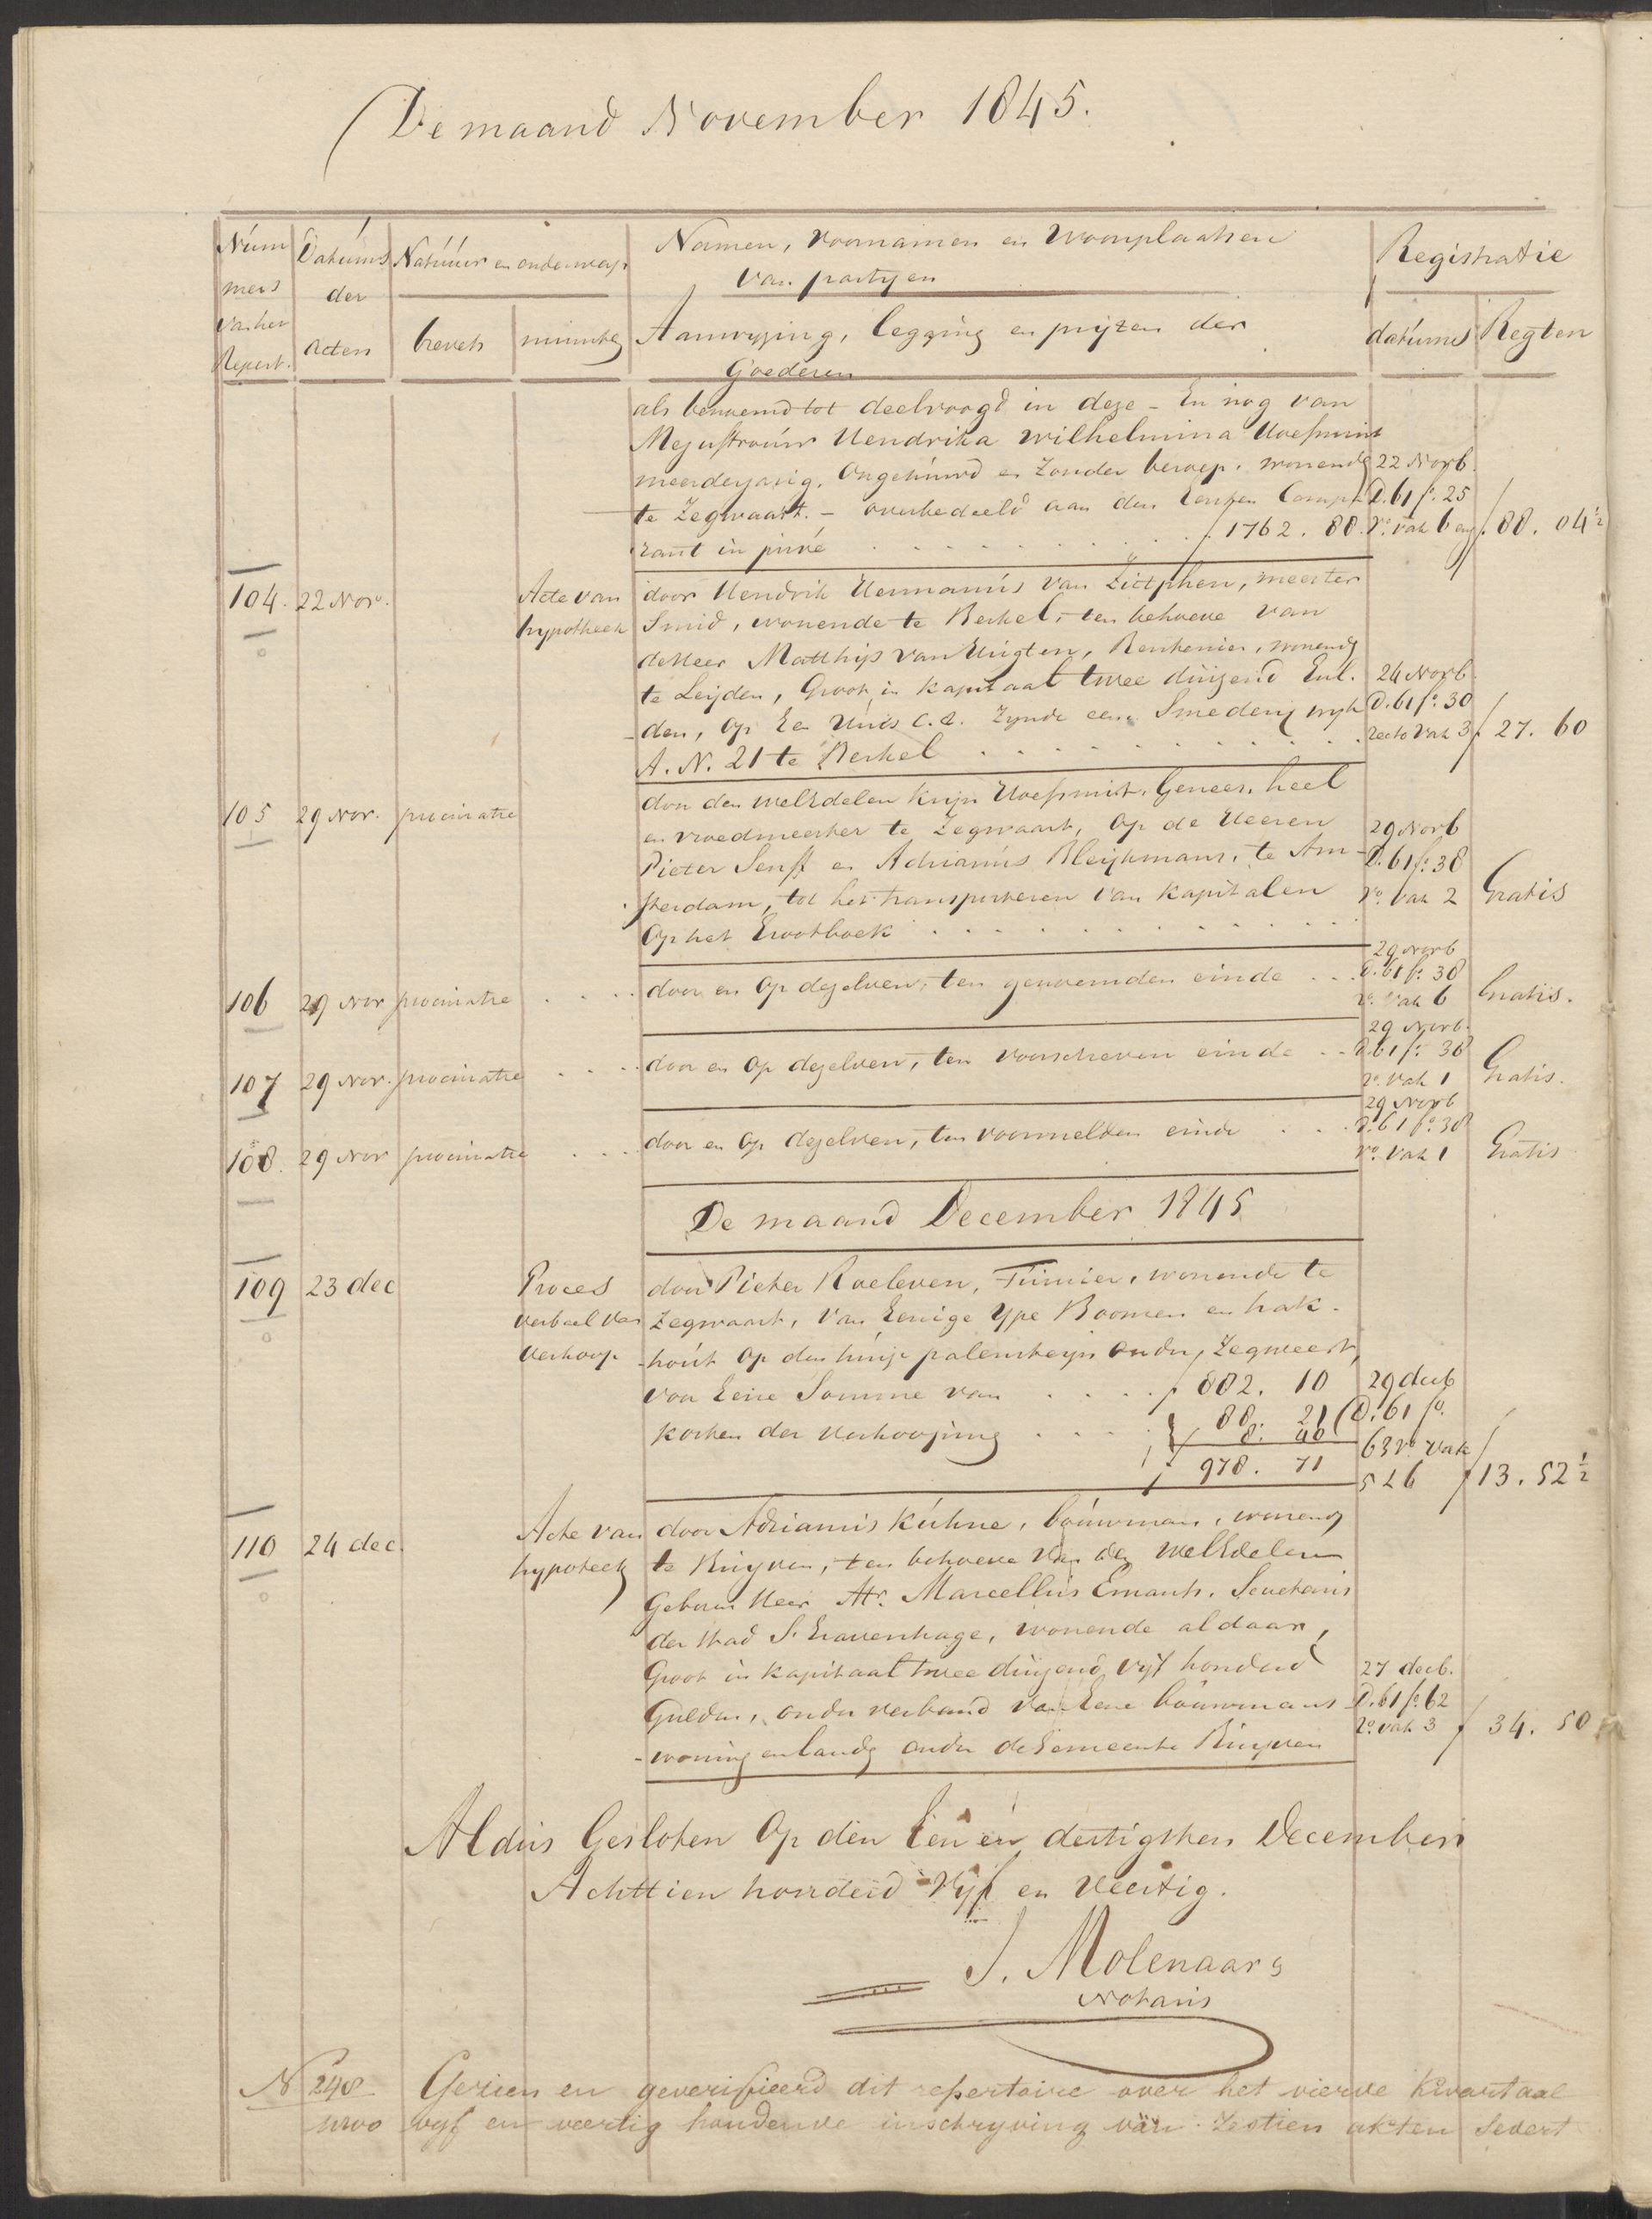 De maand November 1845.
Num Datums Natuur en onderwerp Namen, voornamen en Woonplaatsen Registratie
mers der van partyen
van het Acten brevets minuten Aanwyzing, legging en prijzen der datums Regten
Repert. Goederen
als benoemd tot deelvoogd in deze - En nog van
Mejuffrouw Hendrika Wilhelmina Hoefsmit
meerderjarig, Ongehuwd en Zonder beroep, wonende 22 Novb.
te Zegwaart. - overbedeeld aan den Eersten Compa D. 61 fo. 25
rant in privé . . . f 1762. 88. vo. vak 6 en f 88. 04½
104. 22 Nov. Acte van door Hendrik Hermanus van Zutphen, meester
hypotheek Smid, wonende te Berkel, ten behoeve van
de Heer Matthijs van , Rentenier, wonende
te Leijden, Groot in kapitaal twee duizend Gul- 24 Novb.
den, Op Een Huis c.a. Zynde eene Smederij wyk D. 61 fo. 30
A. N. 21 te Berkel . . . recto vak 3 f 27. 60
105 29 Nov. procuratie door den WelEdelen Krijn Hoefsmit, Genees, heel
en vroedmeester te Zegwaart, Op de Heeren 29 Novb
Pieter Senff en Adrianus Bleijkmans, te Am- D. 61 fo. 38
sterdam, tot het transporteren van kapitalen vo. vak 2 Gratis
Op het Grootboek . . .
29 Novb
106 29 Nov procuratie . . . door en Op dezelven, ten genoemden einde . . . D. 61 fo. 38
vo. vak 6 Gratis.
29 Novb.
107 29 Nov. procuratie . . . door en Op dezelven, ten voorschreven einde . . D. 61 fo. 38
vo. vak 1 Gratis.
29 Novb
108. 29 Nov procuratie . . . door en Op dezelven, ten voormelden einde . . . D. 61 fo. 38
vo. vak 1 Gratis
De maand December 1845
109 23 dec Proces door Pieter Roeleven, Tuinier, wonende te
verbael van Zegwaart, Van Eenige Ype Boomen en hak-
verkoop hout Op den huize palensteyn onder Zegweert,
voor Eene Somme van . . . f 882. 10 29 decb
kosten der verhooging . . . 88. 21 D. 61 fo.
8. 40 63 vo vak
f 978. 71 5 & 6 f 13. 52½
110 24 dec. Acte van door Adrianus Kuhne, bouwman, wonend
hypoteek te Ruyven, ten behoeve van den WelEdelen
Geboren Heer Mr. Marcellus Emants, Secretaris
der Stad S. Gravenhage, wonende aldaar,
Groot in kapitaal twee duizend vijf honderd 27 decb.
Gulden, onder verband van Eene bouwmans D. 61 fo. 62
-woning en landen onder de Gemeente Ruyven vo. vak 3 f 34. 50
Aldus Gesloten Op den Een en dertigsten December
Achttien honderd Vijf en Veertig.
J. Molenaar
Notaris
N 248 Gezien en geverifieerd dit repertoire over het vierde kwartaal
vijf en veertig houdende inschryving van Zestien akten Sedert